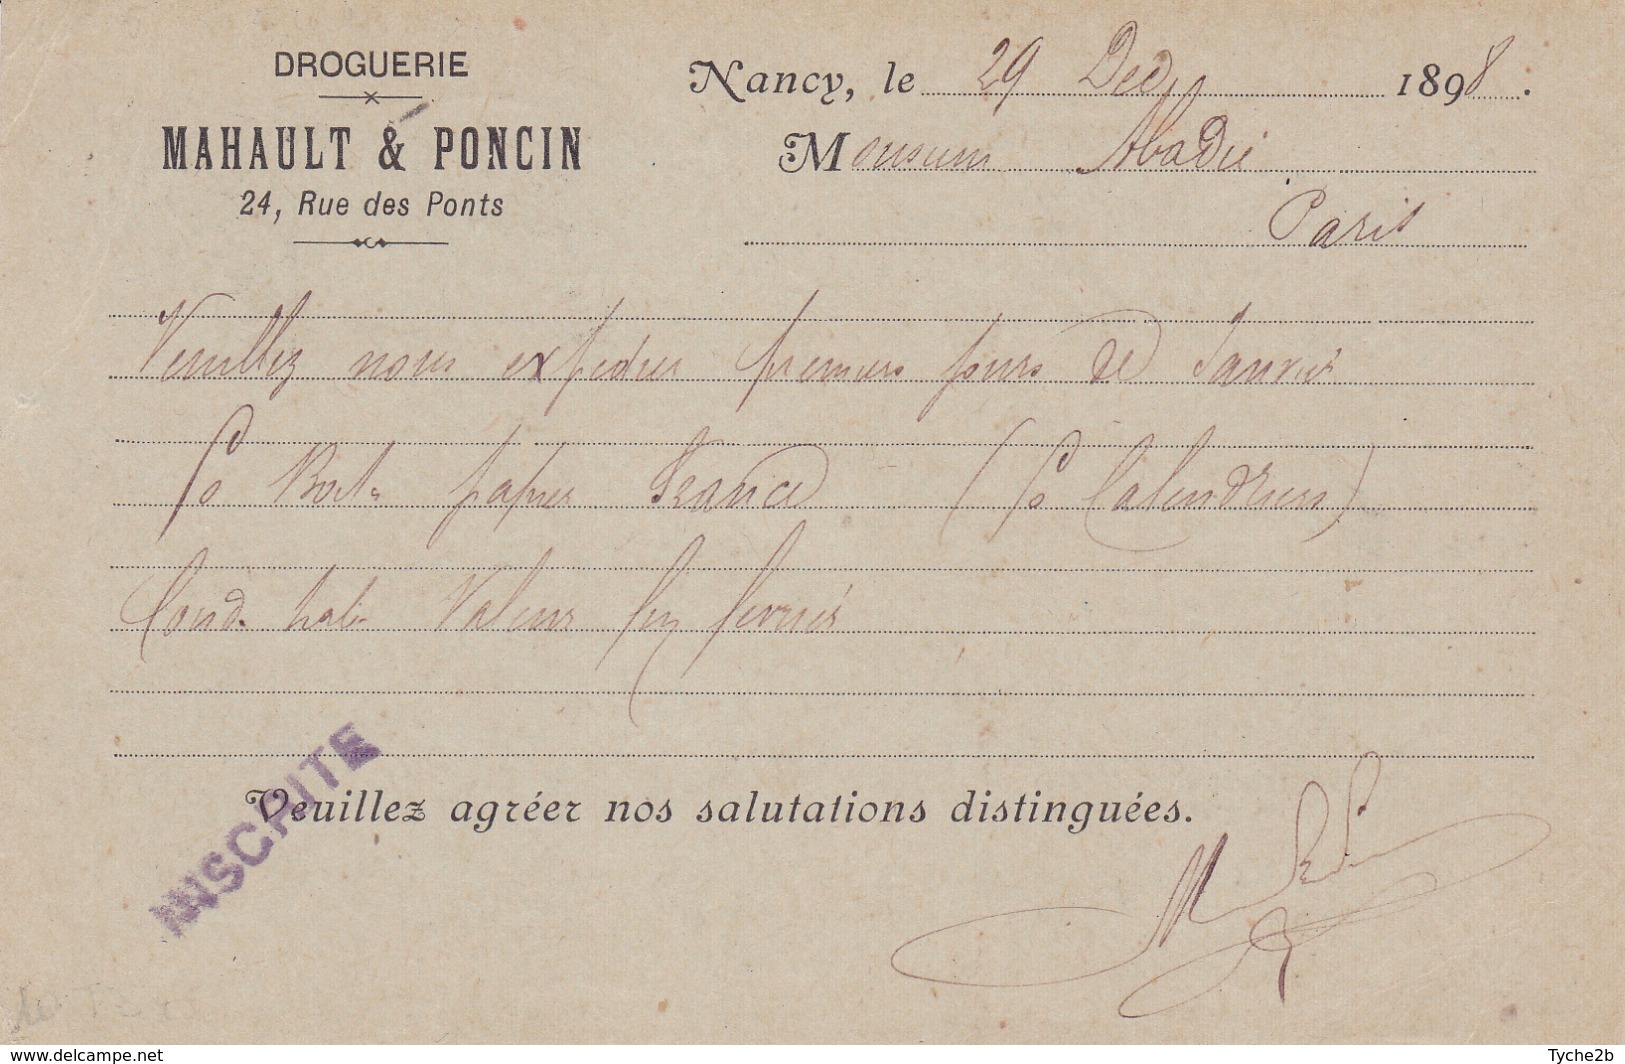 DROGUERIE
MAHAULT & PONCIN
24, Rue des Ponts
Nancy, le 29 Dec 1898.
Monsieur Abadie
Paris
Veuillez nous expedier premiers jours de Janvier
50 Boites papier France (50 Calendriers)
Cond. hab. Valeur fin fevrier
INSCRITE
Veuillez agréer nos salutations distinguées.
www.delcampe.net
Tyche2b